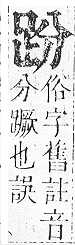 𧿚
俗字舊註音
分蹶也誤